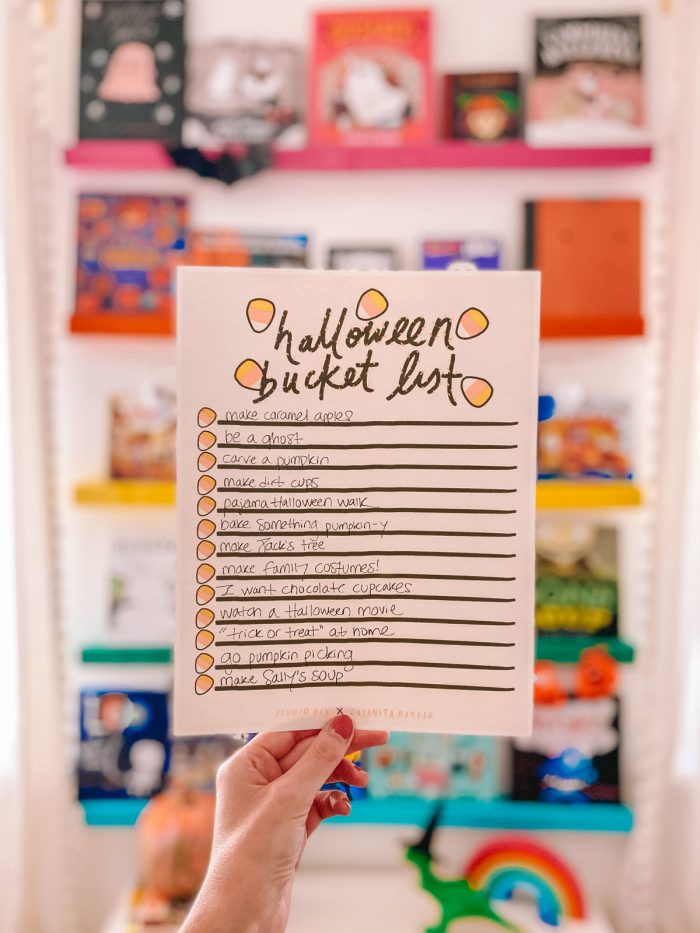 halloween
bucket list
make caramel apples
be a ghost
carve a pumpkin
make dirt cups
pajama Halloween walk
bake something pumpkin-y
make Jack's tree
make family costumes!
I want chocolate cupcakes
watch a Halloween movie
"trick or treat" at home
go pumpkin picking
make Sally's soup
STUDIO DIY x DAYANITA RAMESH